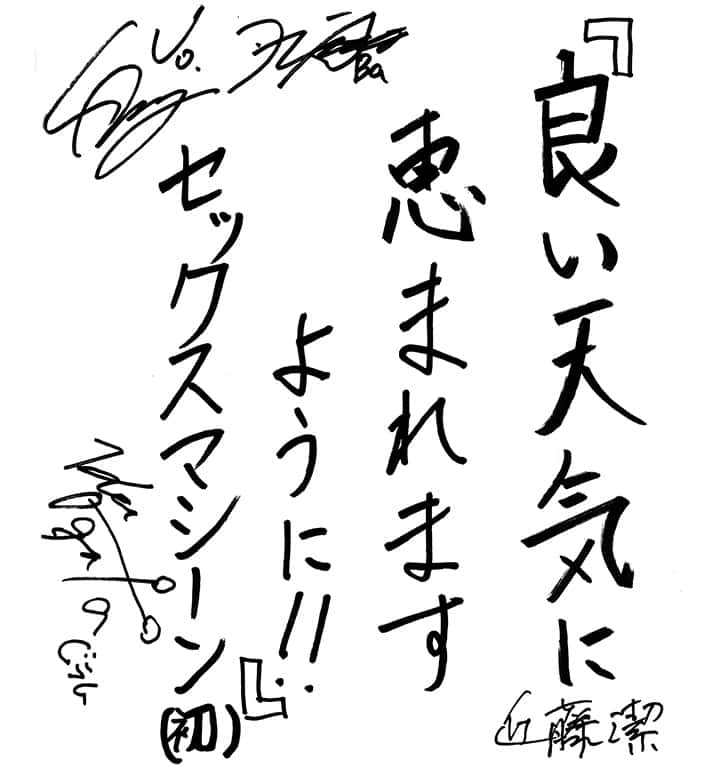 『良い天気に
恵まれます
ように!!』
セックスマシーン
(初)
Vo.
Ba
近藤潔